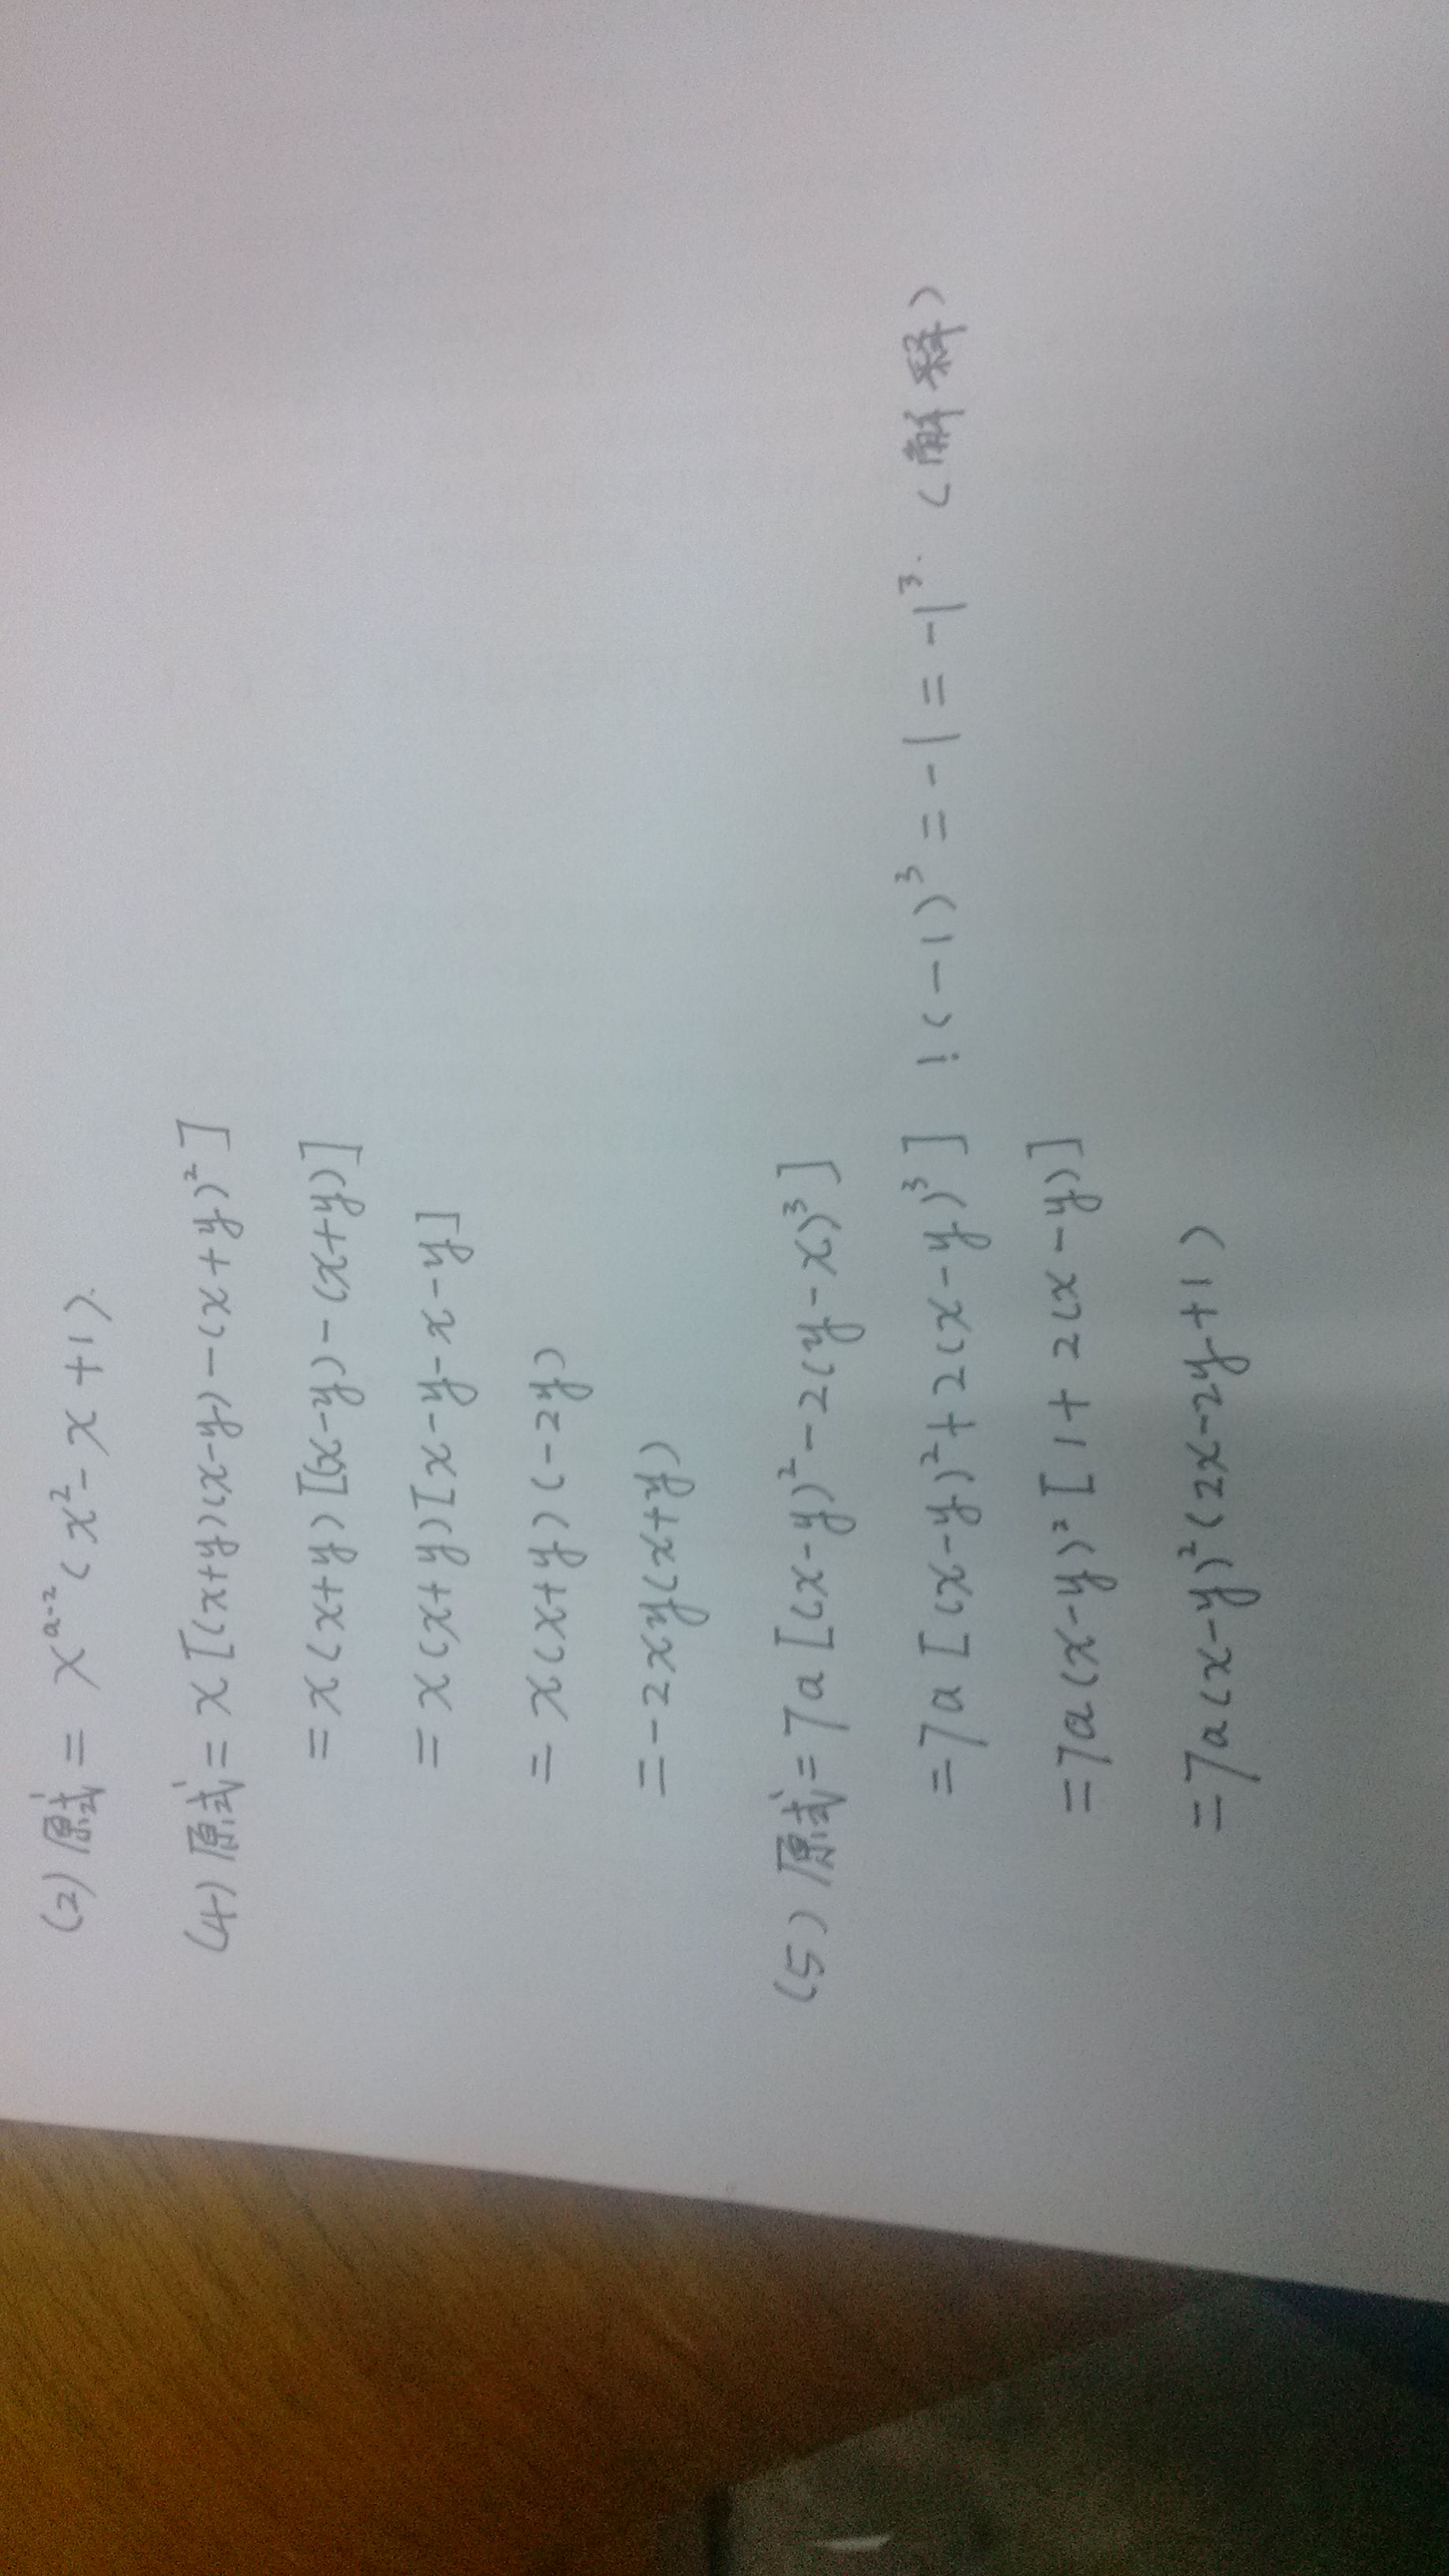 (2) 原式 = x^{a-2}(x²-x+1).
(4) 原式 = x[(x+y)(x-y)-(x+y)²]
=x(x+y)[(x-y)-(x+y)]
=x(x+y)[x-y-x-y]
=x(x+y)(-2y)
=-2xy(x+y)
(5) 原式=7a[(x-y)²-2(y-x)³]
=7a[(x-y)²+2(x-y)³] !(-1)³=-1=-1³.(解释)
=7a(x-y)²[1+2(x-y)]
=7a(x-y)²(2x-2y+1)